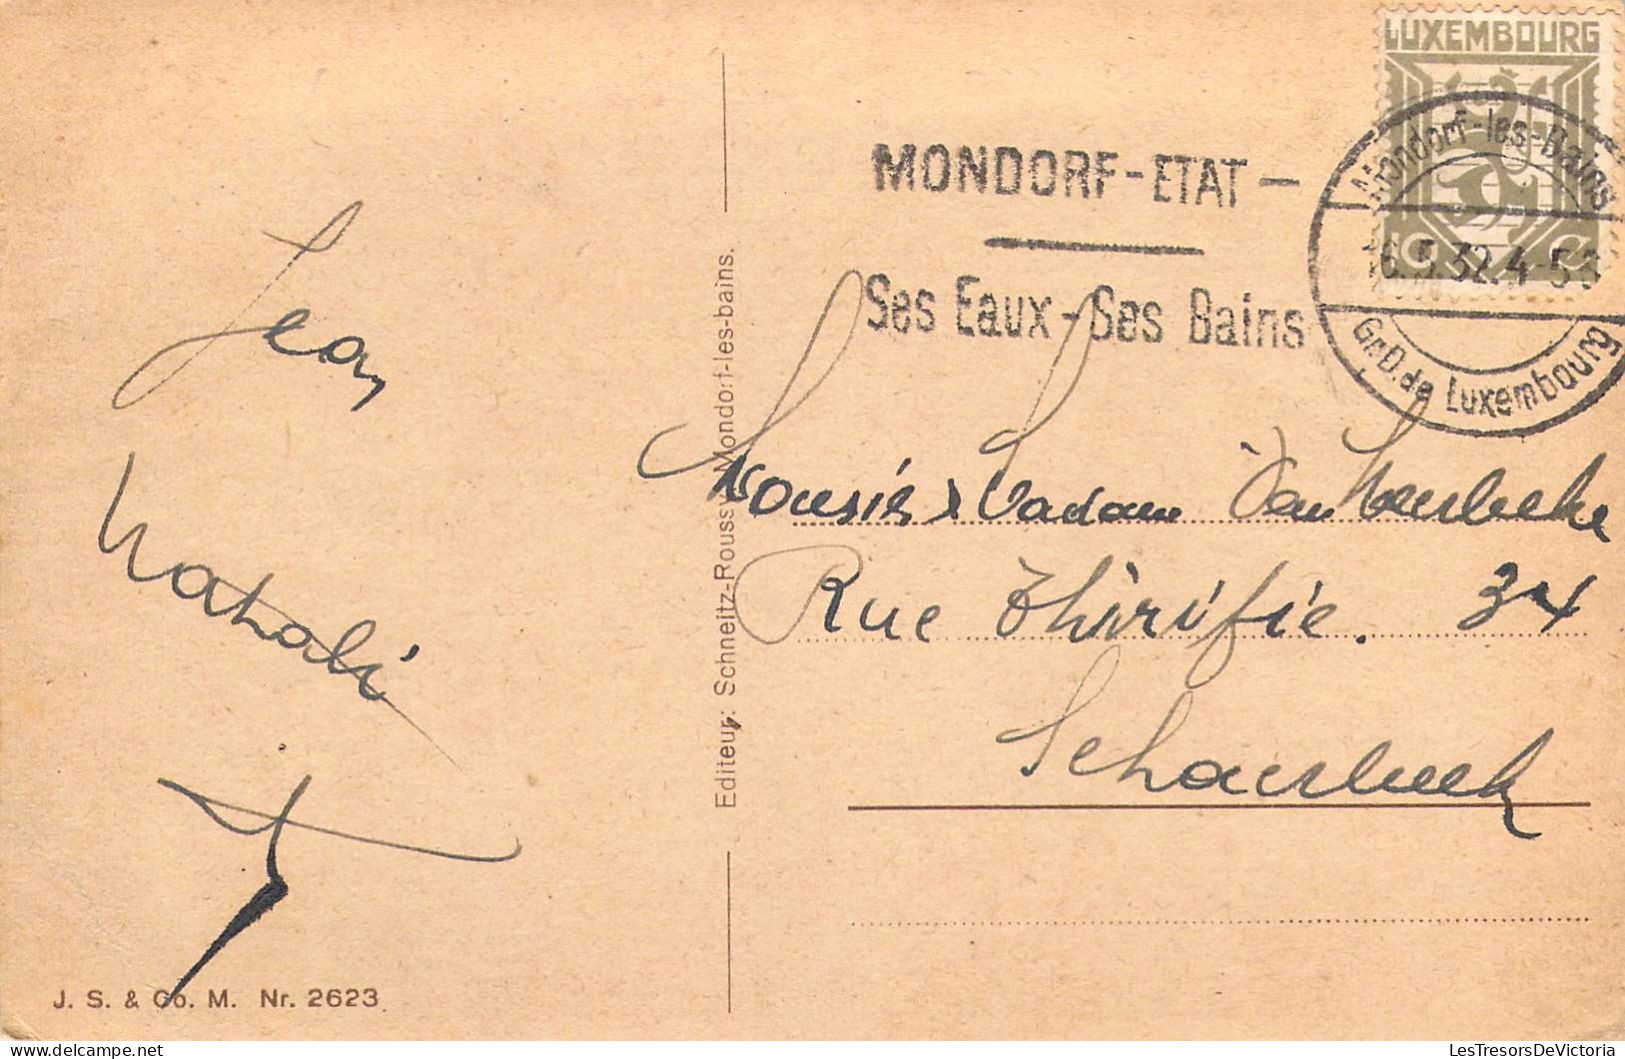 LUXEMBOURG
Mondorf-les-Bains
6.5.32.4-5
Gr.D.de Luxembourg
MONDORF-ETAT —
Ses Eaux-Ses Bains
Jean
Editeur: Schneitz-Roussy, Mondorf-les-bains.
Madame Van
Rue Thirifie. 34
Schaerbeek
J. S. & Co. M. Nr. 2623
LesTresorsDeVictoria